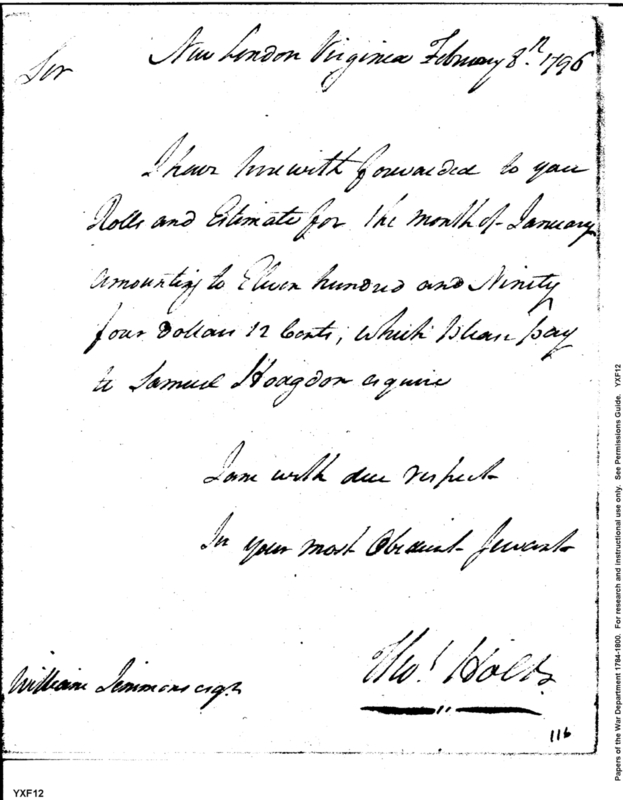 New London Virginia February 8th. 1796
Sir
I have herewith forwarded to you
Rolls and Estimate for the month of January
amounting to Eleven hundred and Ninity
four Dollars 12 Cents, which please pay
to Samuel Hodgdon esquire
I am with due respect
Sr your most Obedient Servant
Tho.s Holt
William Simmons esqr
116
Papers of the War Department 1784-1800. For research and instructional use only. See Permissions Guide. YXF12
YXF12